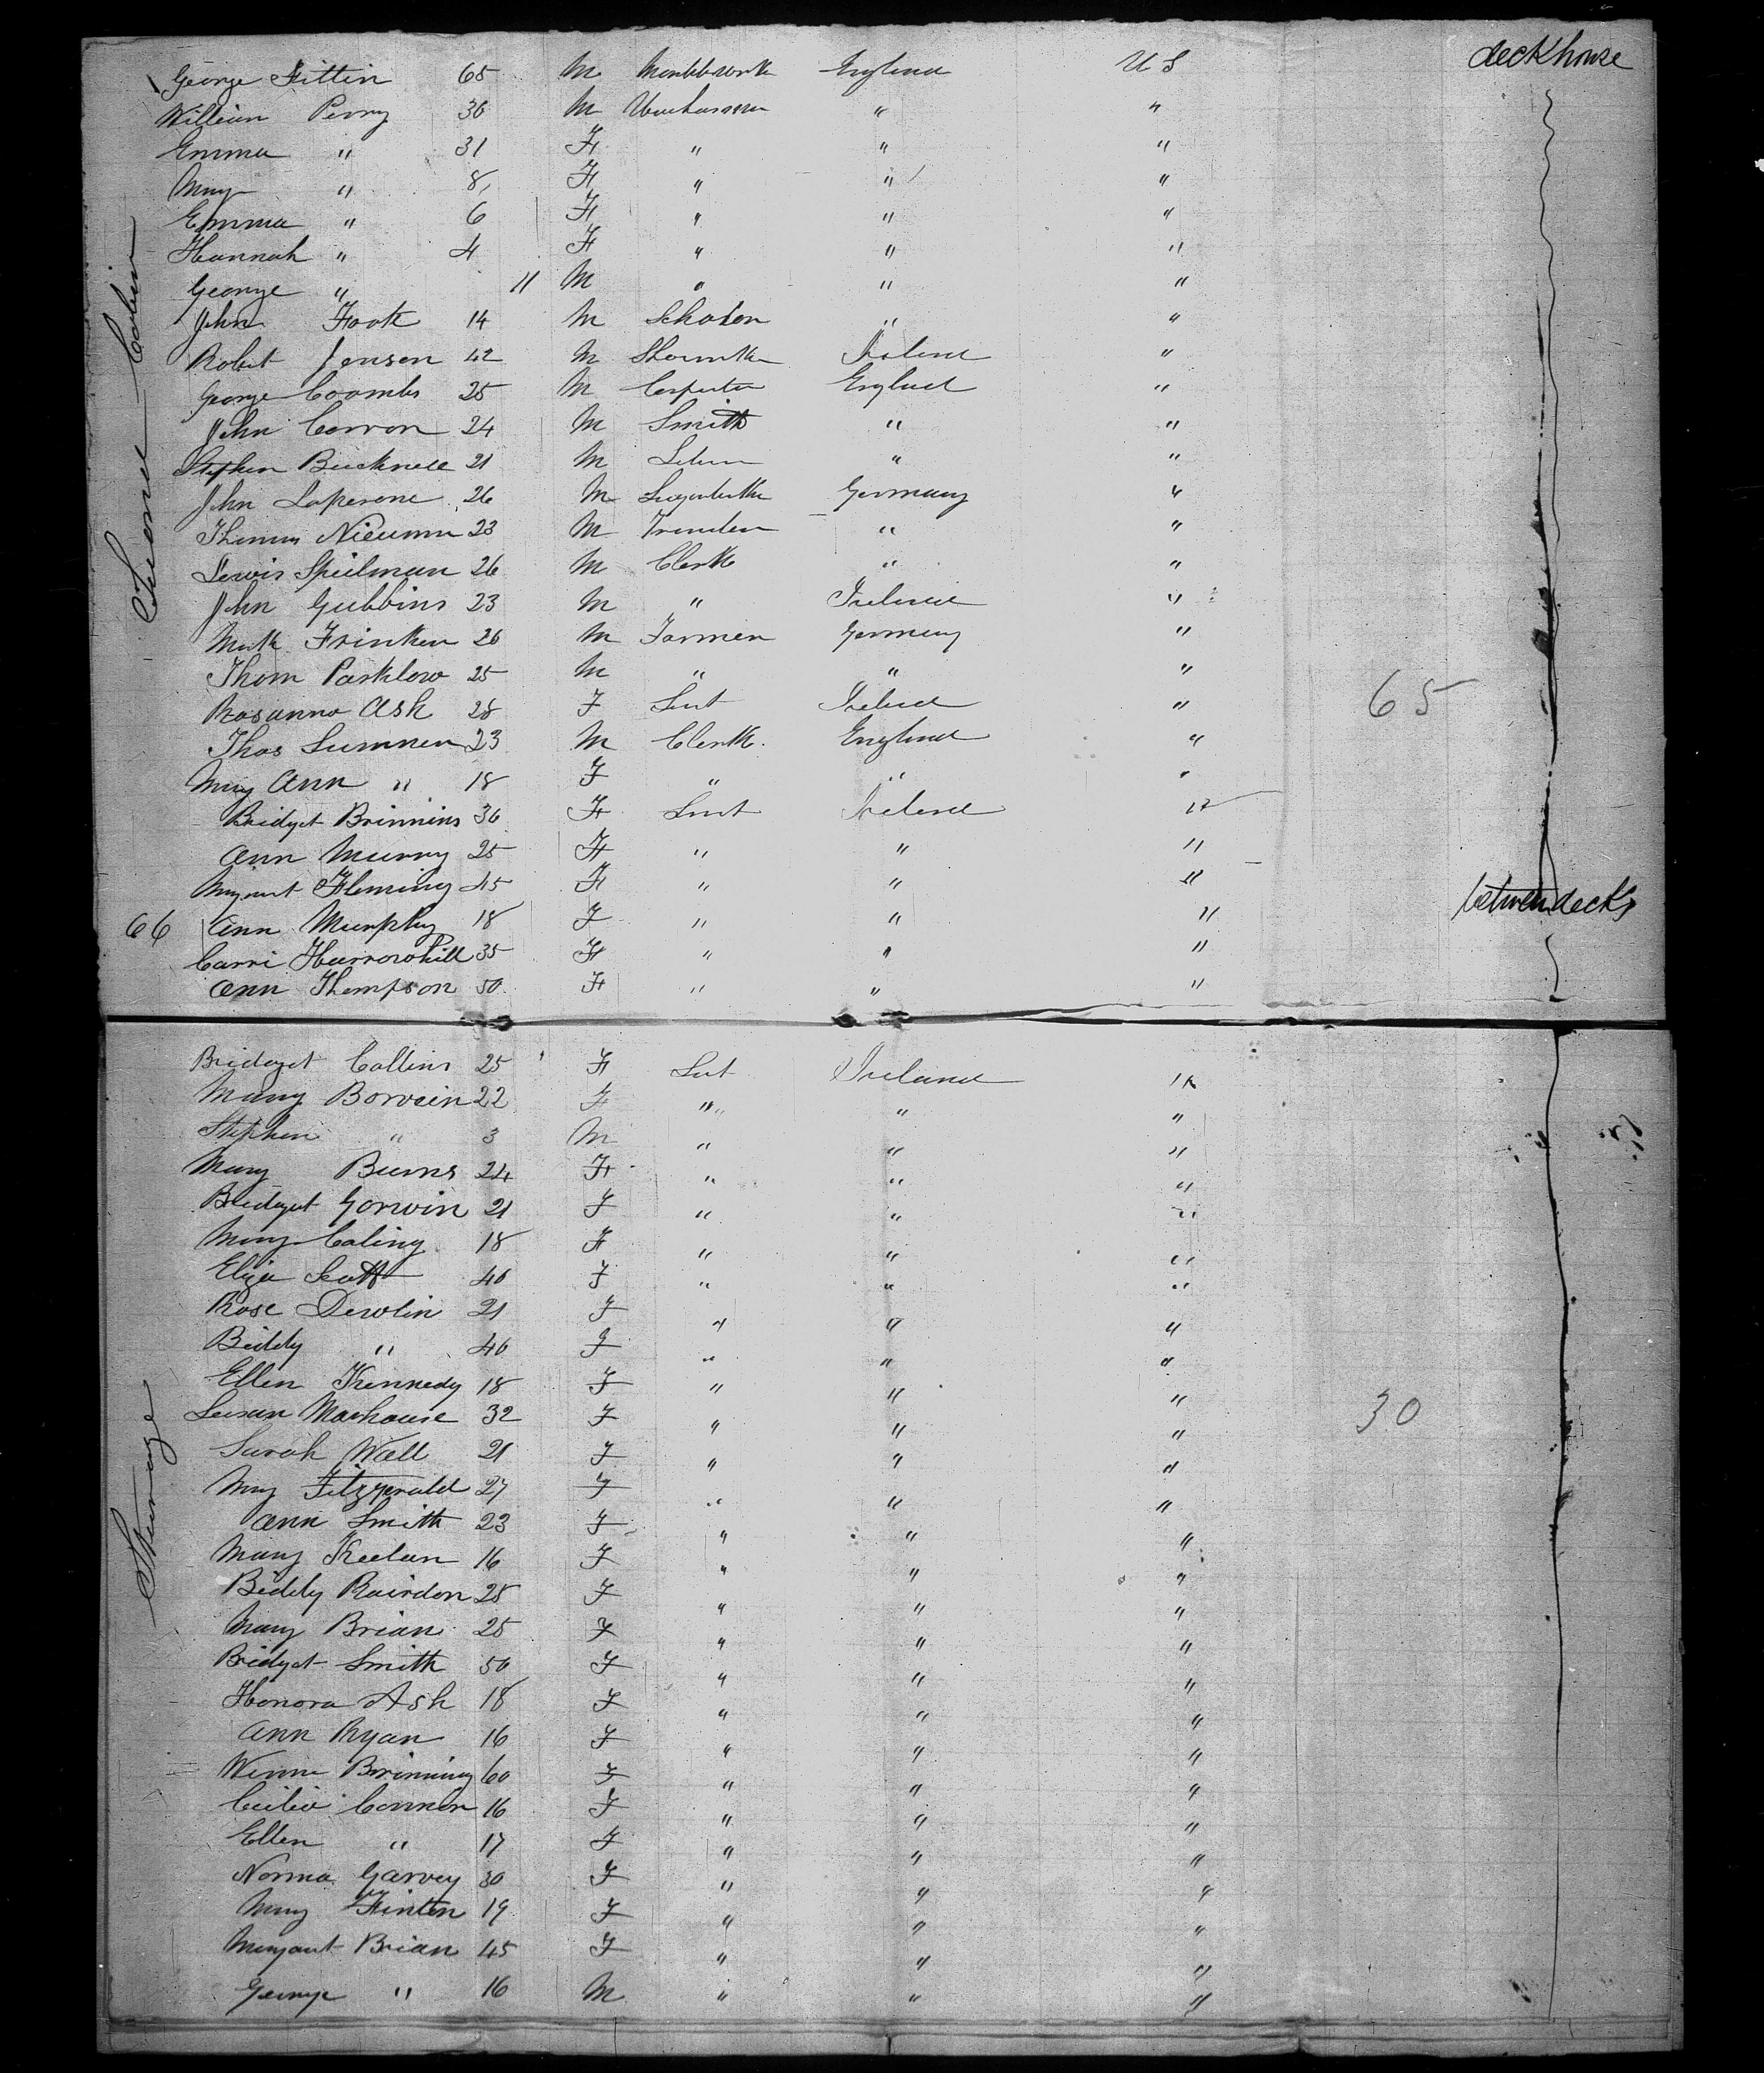 deckhouse
George Fittin 65 M England U S
William Perry 36 M " "
Emma " 31 F " " "
May " 8 F " " "
Emma " 6 F " " "
Hannah " 4 F " " "
George " 11 M " " "
John Fook 14 M " "
Robert Jonson 42 M Ireland "
George Coombs 25 M Carpenter England "
John Corron 24 M Smith " "
Stephen Bucknell 21 M " "
John Laperone 26 M Germany "
Thomas Nieumn 23 M " "
Lewis Speilman 26 M Clerk " "
John Gubbins 23 M " Ireland "
Frinken 26 M Farmer Germany "
Thom Parklow 25 M " " "
Rosanna Ash 28 F Ireland " 65
Thos Sumner 23 M Clerk England "
Mary Ann " 18 F " " "
Second Cabin
Bridget Brinnins 36 F Ireland "
Ann Murry 25 F " " "
Margaret Fleming 45 F " " "
between decks
66 Ann Murphy 18 F " " "
Carri Harrowhill 35 F " " "
Ann Thompson 50 F " " "
Bridget Collins 25 F Ireland "
Mary Borvein 22 F " " "
Stephen " 3 M " " "
Mary Burns 24 F " " "
Bridget Gorwin 21 F " " "
Mary Caling 18 F " " "
Eliza Scott 40 F " " "
Rose Dewlin 21 F " " "
Biddy " 40 F " " "
Ellen Kennedy 18 F " " "
Susan Morhouse 32 F " " " 30
Sarah Wall 21 F " " "
May Fitzgerald 27 F " " "
Steerage
Ann Smith 23 F " " "
Mary Keelan 16 F " " "
Biddy Rairdon 25 F " " "
Mary Brian 25 F " " "
Bridget Smith 50 F " " "
Honora Ash 18 F " " "
Ann Ryan 16 F " " "
Winni Brinning 60 F " " "
Cecilia Connor 16 F " " "
Ellen " 17 F " " "
Norma Garvey 30 F " " "
Mary Finten 19 F " " "
Margaret Brian 45 F " " "
George " 16 M " " "